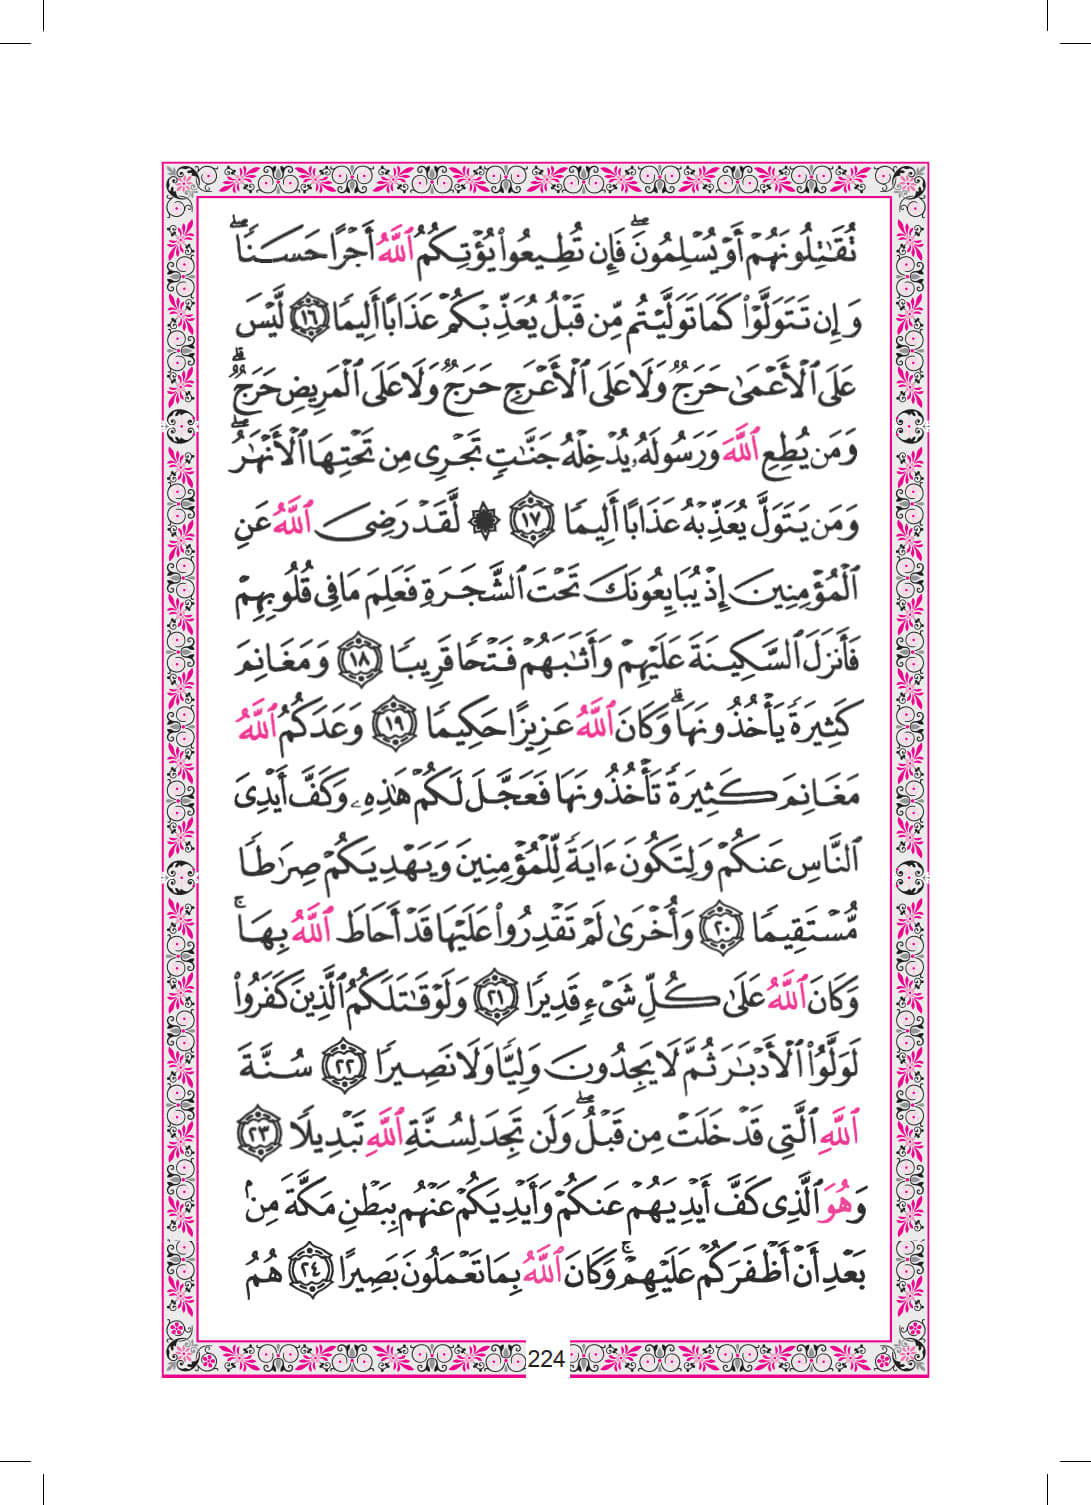 تُقَٰتِلُونَهُمْ أَوْ يُسْلِمُونَۖ فَإِن تُطِيعُوا۟ يُؤْتِكُمُ ٱللَّهُ أَجْرًا حَسَنًاۖ
وَإِن تَتَوَلَّوْا۟ كَمَا تَوَلَّيْتُم مِّن قَبْلُ يُعَذِّبْكُمْ عَذَابًا أَلِيمًا ١٦ لَّيْسَ
عَلَى ٱلْأَعْمَىٰ حَرَجٌ وَلَا عَلَى ٱلْأَعْرَجِ حَرَجٌ وَلَا عَلَى ٱلْمَرِيضِ حَرَجٌۗ
وَمَن يُطِعِ ٱللَّهَ وَرَسُولَهُۥ يُدْخِلْهُ جَنَّٰتٍ تَجْرِى مِن تَحْتِهَا ٱلْأَنْهَٰرُۖ
وَمَن يَتَوَلَّ يُعَذِّبْهُ عَذَابًا أَلِيمًا ١٧ ۞ لَّقَدْ رَضِىَ ٱللَّهُ عَنِ
ٱلْمُؤْمِنِينَ إِذْ يُبَايِعُونَكَ تَحْتَ ٱلشَّجَرَةِ فَعَلِمَ مَا فِى قُلُوبِهِمْ
فَأَنزَلَ ٱلسَّكِينَةَ عَلَيْهِمْ وَأَثَٰبَهُمْ فَتْحًا قَرِيبًا ١٨ وَمَغَانِمَ
كَثِيرَةً يَأْخُذُونَهَاۗ وَكَانَ ٱللَّهُ عَزِيزًا حَكِيمًا ١٩ وَعَدَكُمُ ٱللَّهُ
مَغَانِمَ كَثِيرَةً تَأْخُذُونَهَا فَعَجَّلَ لَكُمْ هَٰذِهِۦ وَكَفَّ أَيْدِىَ
ٱلنَّاسِ عَنكُمْ وَلِتَكُونَ ءَايَةً لِّلْمُؤْمِنِينَ وَيَهْدِيَكُمْ صِرَٰطًا
مُّسْتَقِيمًا ٢٠ وَأُخْرَىٰ لَمْ تَقْدِرُوا۟ عَلَيْهَا قَدْ أَحَاطَ ٱللَّهُ بِهَاۚ
وَكَانَ ٱللَّهُ عَلَىٰ كُلِّ شَىْءٍ قَدِيرًا ٢١ وَلَوْ قَٰتَلَكُمُ ٱلَّذِينَ كَفَرُوا۟
لَوَلَّوُا۟ ٱلْأَدْبَٰرَ ثُمَّ لَا يَجِدُونَ وَلِيًّا وَلَا نَصِيرًا ٢٢ سُنَّةَ
ٱللَّهِ ٱلَّتِى قَدْ خَلَتْ مِن قَبْلُۖ وَلَن تَجِدَ لِسُنَّةِ ٱللَّهِ تَبْدِيلًا ٢٣
وَهُوَ ٱلَّذِى كَفَّ أَيْدِيَهُمْ عَنكُمْ وَأَيْدِيَكُمْ عَنْهُم بِبَطْنِ مَكَّةَ مِنۢ
بَعْدِ أَنْ أَظْفَرَكُمْ عَلَيْهِمْۚ وَكَانَ ٱللَّهُ بِمَا تَعْمَلُونَ بَصِيرًا ٢٤ هُمُ
224